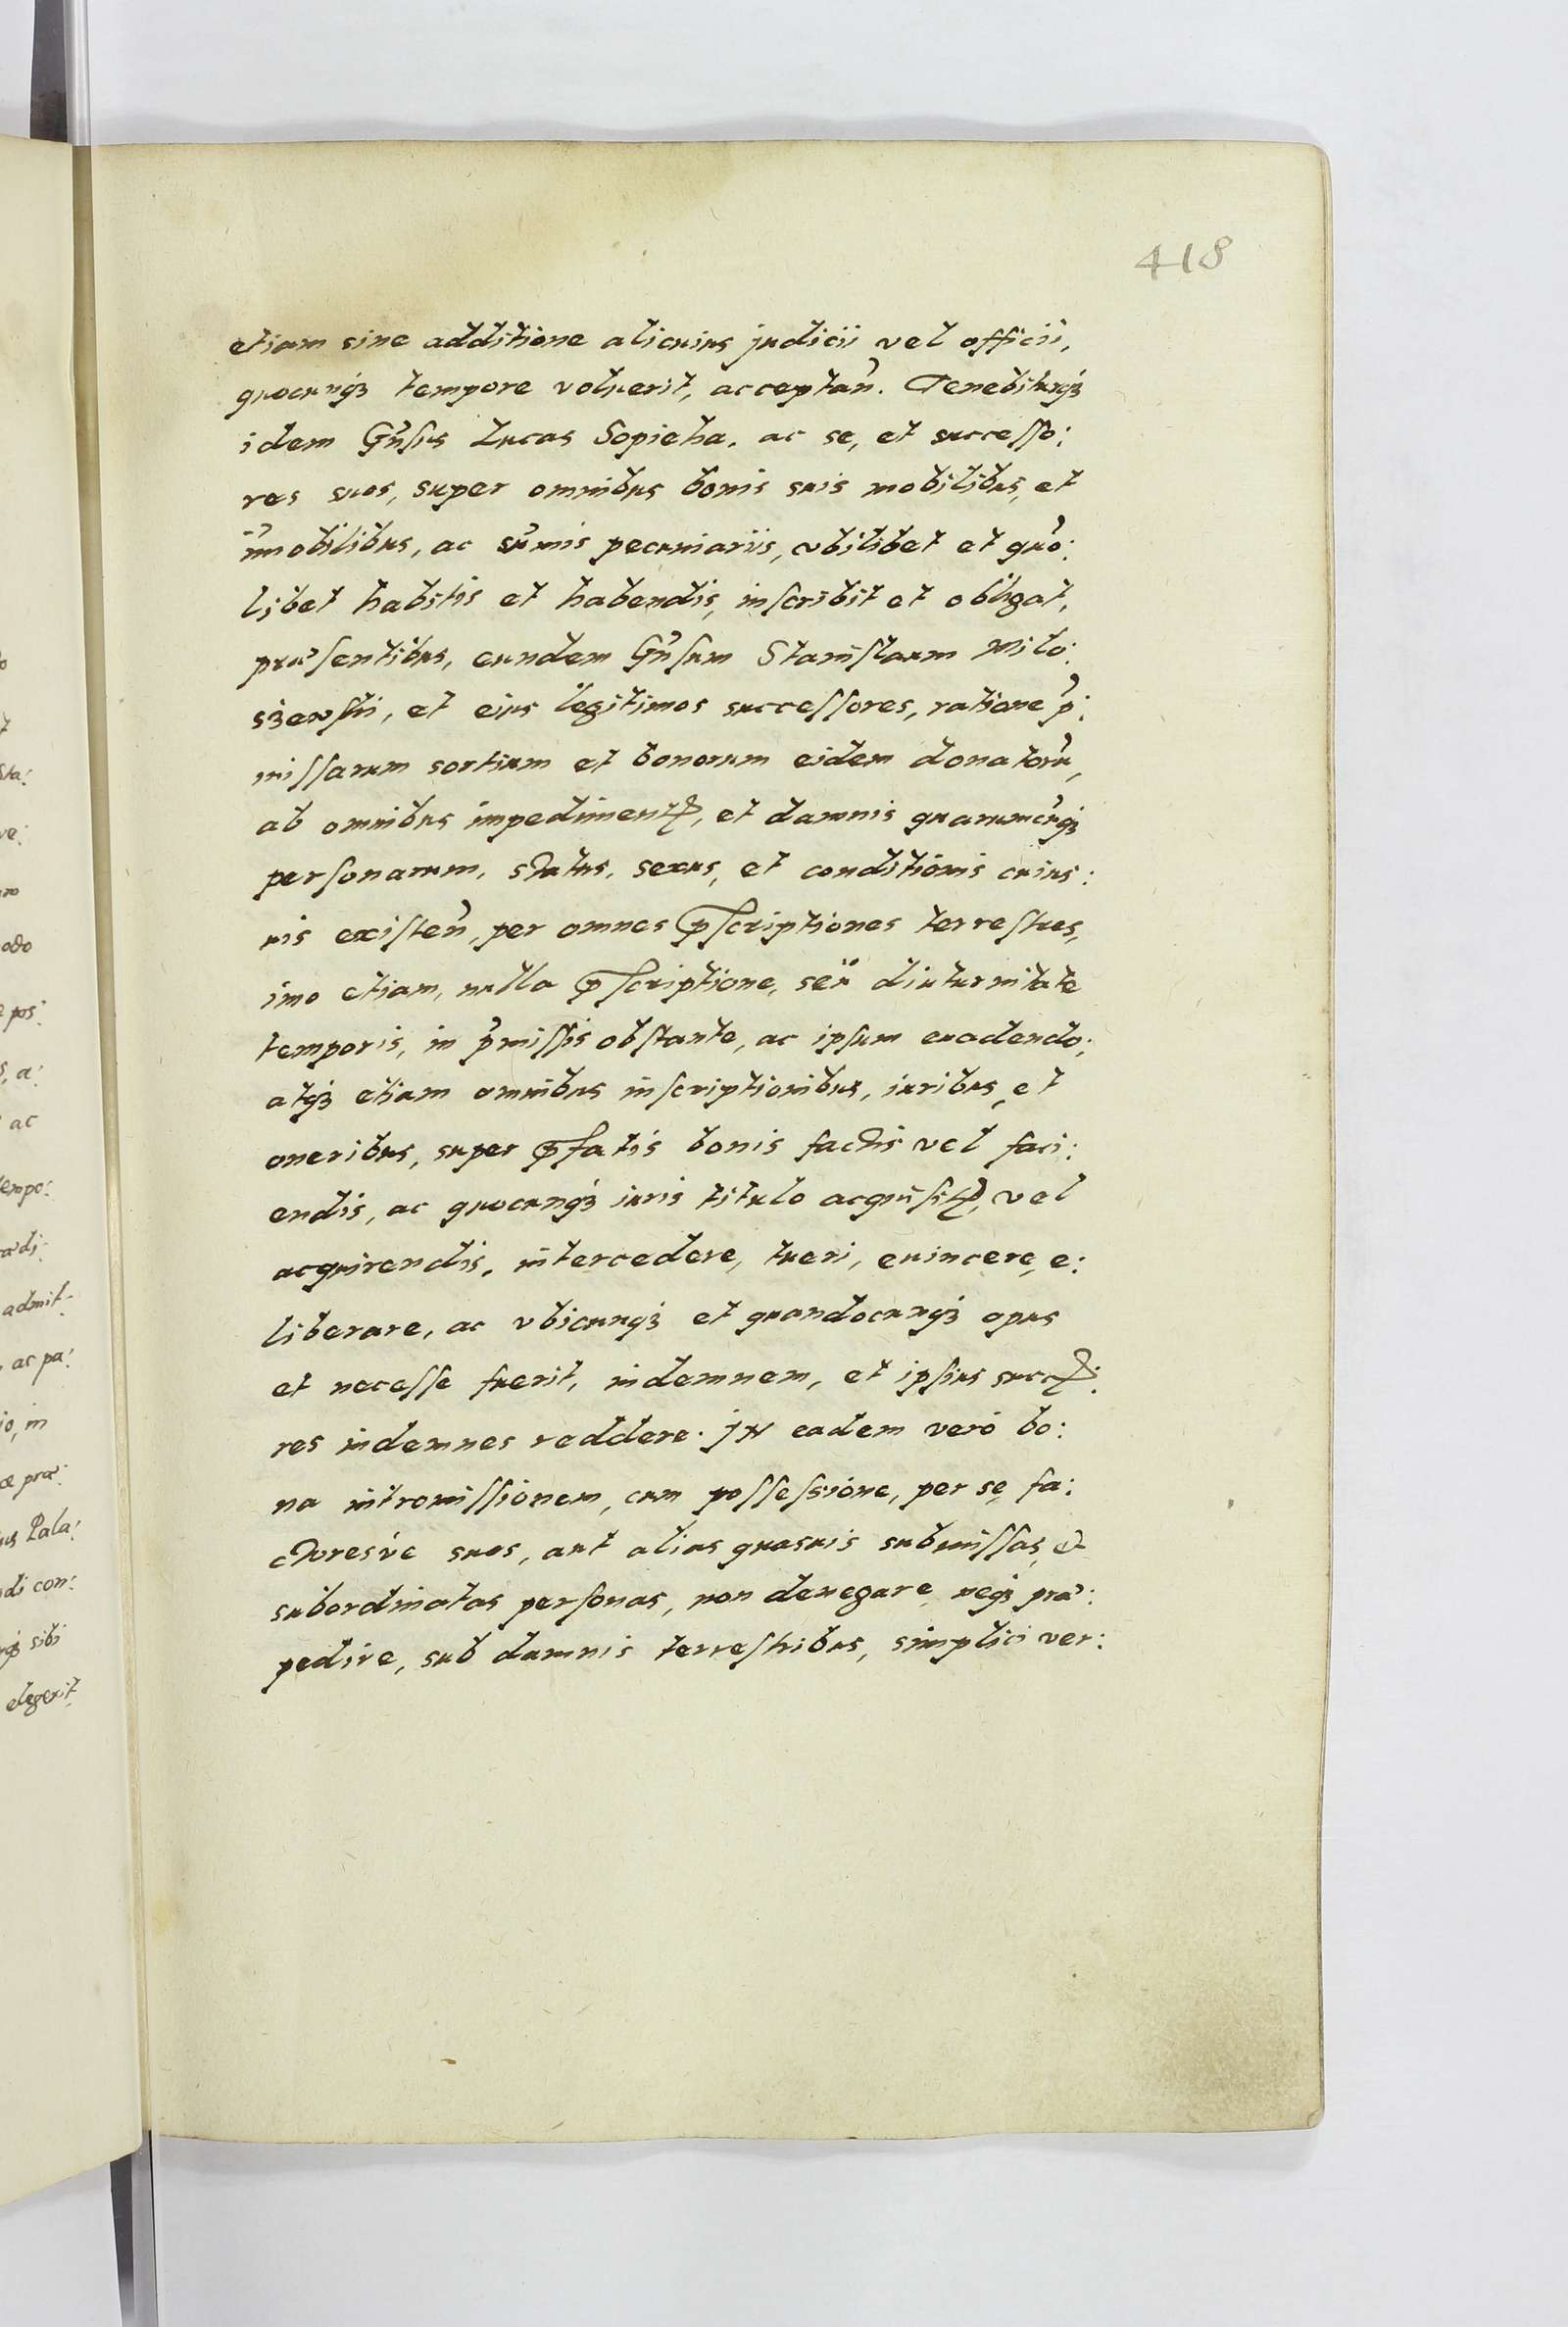 418
etiam sine additione alicuius judicii vel officii,
quocunqꝫ tempore voluerit, acceptan̉. Tenebiturqꝫ
idem Gn̉sus Lucas Sopieha, ac se, et successo:
res suos, super omnibus bonis suis mobilibus, et
im̉obilibus, ac sum̉is pecuniariis, vbilibet et quo:
libet habitis et habendis, inscribit et obligat,
præsentibus, eundem Gn̉sum Stanislaum Milo:
szewskii, et eius legitimos successores, ratione p̉:
missarum sortium et bonorum eidem donatorủ,
ab omnibus impedimentꝭ, et damnis quarumcủqꝫ
personarum, status, sexus, et conditionis cuius:
uis existen̉, per omnes p̄scriptiones terrestres,
imo etiam, nulla p̄scriptione, seu diuturnitate
temporis, in p̉missis obstante, ac ipsum euadendo;
atqꝫ etiam omnibus inscriptionibus, iuribus, et
oneribus, super p̄fatis bonis factis vel faci:
endis, ac quocunqꝫ iuris titulo acquisitꝭ, vel
acquirendis, intercedere, tueri, euincere, e:
liberare, ac vbicunqꝫ et quandocunqꝫ opus
et necesse fuerit, indemnem, et ipsius succꝭ:
res indemnes reddere. jN eadem veró bo:
na intromissionem, cum possessione, per se, fa:
ctoresvé suos, aut alias quasuis submissas, et
subordinatas personas, non denegare, neqꝫ præ:
pedire, sub damnis terrestribus, simplici ver:
ve:
odo
pos:
, a:
ac
tempo:
admit:
, ac pa:
io, in
præ:
Pala:
di con:
sibi
elegerit